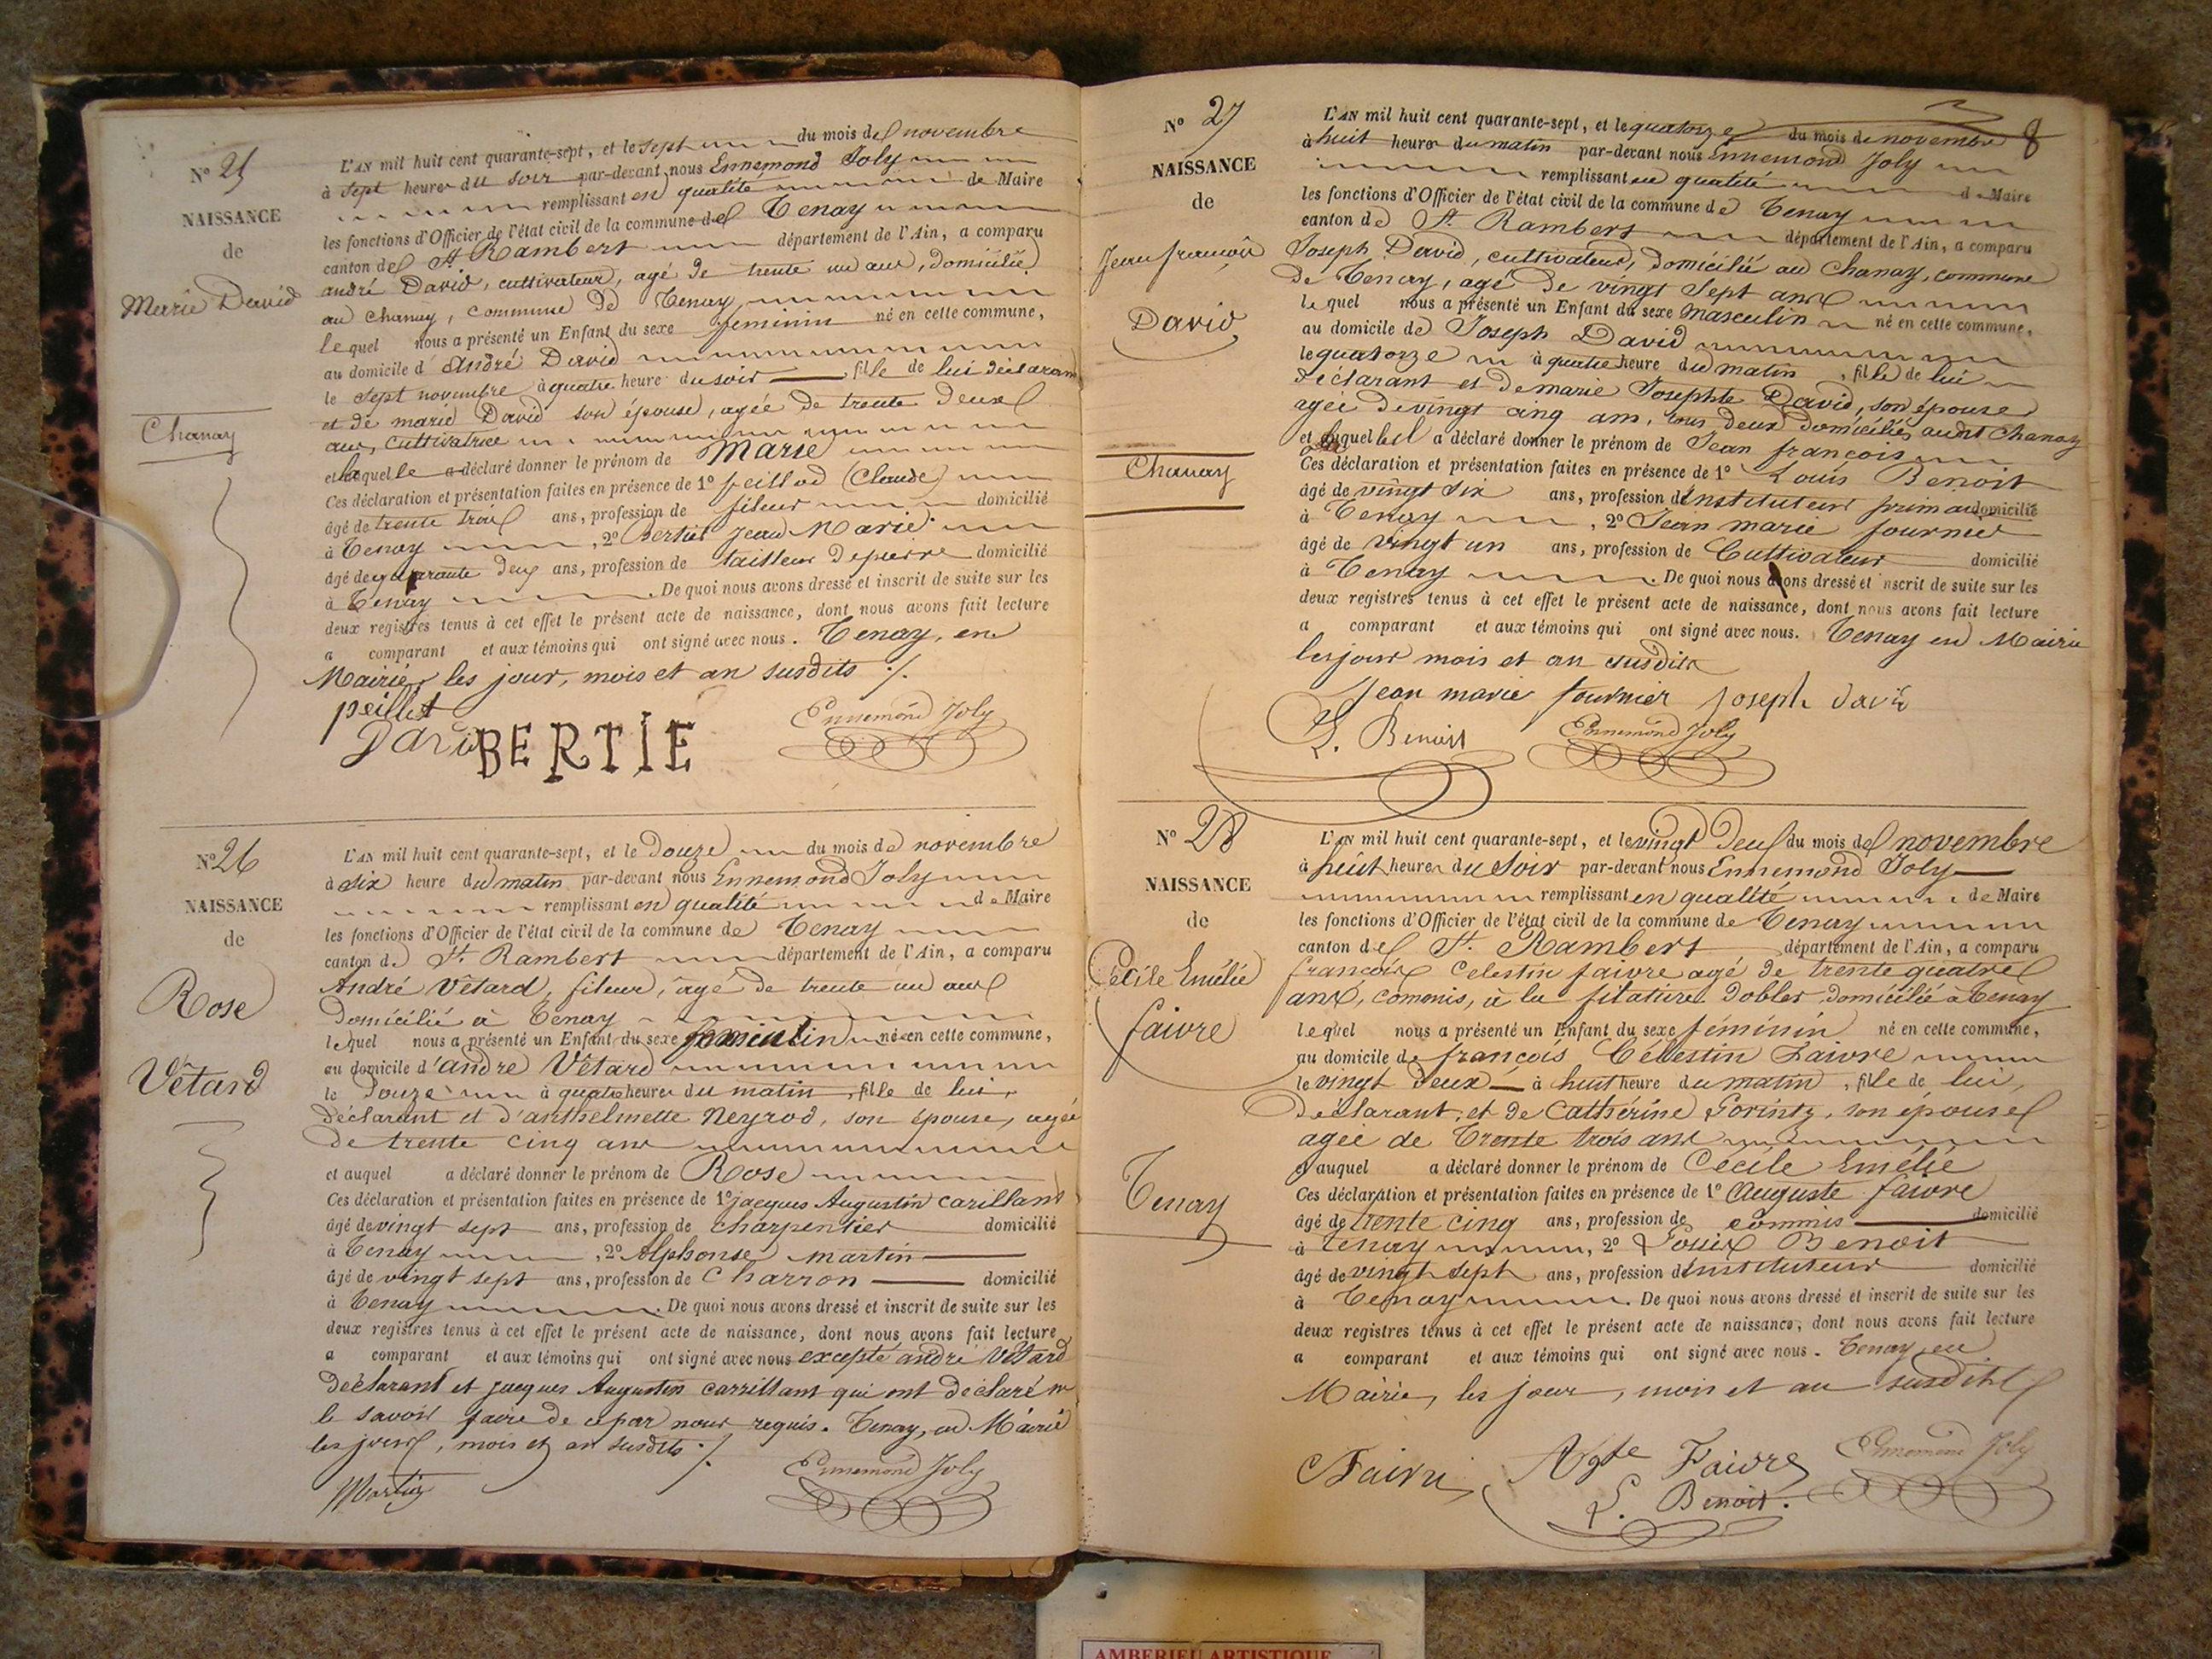 Nº 25
NAISSANCE
de
Marie David
Chanay
L'AN mil huit cent quarante-sept, et le sept du mois de novembre
à sept heures du soir par-devant nous Ennemond Joly
remplissant en qualité de Maire
les fonctions d'Officier de l'état civil de la commune de Tenay
canton de St Rambert département de l'Ain, a comparu
andré David, cultivateur, agé de trente un ans, domicilié
au chanay, commune de Tenay
lequel nous a présenté un Enfant du sexe feminin né en cette commune,
au domicile d'André David
le sept novembre à quatre heure du soir fille de lui déclarant
et de marie David son épouse, agée de trente deux
ans, cultivatrice
et laquelle a déclaré donner le prénom de Marie
Ces déclaration et présentation faites en présence de 1º peillod (Claude)
âgé de trente trois ans, profession de fileur domicilié
à Tenay, 2º Bertiet Jean Marie
âgé de quarante deux ans, profession de tailleur de pierre domicilié
à Tenay. De quoi nous avons dressé et inscrit de suite sur les
deux registres tenus à cet effet le présent acte de naissance, dont nous avons fait lecture
a comparant et aux témoins qui ont signé avec nous. Tenay, en
Mairie, les jour, mois et an susdits ./.
peillot
David BERTIE Ennemond Joly
Nº 26
NAISSANCE
de
Rose
Vêtard
L'AN mil huit cent quarante-sept, et le Douze du mois de novembre
à dix heure du matin par-devant nous Ennemond Joly
remplissant en qualité de Maire
les fonctions d'Officier de l'état civil de la commune de Tenay
canton de St. Rambert département de l'Ain, a comparu
André Vêtard, fileur, âgé de trente un ans
Domicilié à Tenay
lequel nous a présenté un Enfant du sexe né en cette commune,
au domicile d'andré Vêtard
le Douze à quatre heures du matin, fille de lui,
déclarant et d'anthelmette Neyrod, son épouse, agée
de trente cinq ans
et auquel a déclaré donner le prénom de Rose
Ces déclaration et présentation faites en présence de 1º jacques Augustin carillant
âgé de vingt sept ans, profession de charpentier domicilié
à Tenay, 2º Alphonse martin
âgé de vingt sept ans, profession de Charron domicilié
à Tenay. De quoi nous avons dressé et inscrit de suite sur les
deux registres tenus à cet effet le présent acte de naissance, dont nous avons fait lecture
a comparant et aux témoins qui ont signé avec nous excepté andré Vêtard
déclarant et jacques Augustin carrillant qui ont déclaré ne
le savoir faire de ce par nous requis. Tenay, en Mairie
les jours, mois et an susdits ./.
Martin Ennemond Joly
8
Nº 27
NAISSANCE
de
Jean françois
David
Chanay
L'AN mil huit cent quarante-sept, et le quatorze du mois de novembre
à huit heure du matin par-devant nous Ennemond Joly
remplissant en qualité de Maire
les fonctions d'Officier de l'état civil de la commune de Tenay
canton de St. Rambert département de l'Ain, a comparu
Joseph David, cultivateur, domicilié au Chanay, commune
de Tenay, agé de vingt sept ans
lequel nous a présenté un Enfant du sexe masculin né en cette commune,
au domicile de Joseph David
le quatorze à quatre heure du matin, fils de lui
déclarant et de marie Josephte David, son épouse
agée de vingt cinq ans, tous deux domiciliés audit Chanay
et auquel il a déclaré donner le prénom de Jean françois
Ces déclaration et présentation faites en présence de 1º Louis Benoit
âgé de vingt six ans, profession d'instituteur primaire domicilié
à Tenay, 2º Jean marie fournier
âgé de vingt un ans, profession de Cultivateur domicilié
à Tenay. De quoi nous avons dressé et inscrit de suite sur les
deux registres tenus à cet effet le présent acte de naissance, dont nous avons fait lecture
a comparant et aux témoins qui ont signé avec nous. Tenay en Mairie
les jour mois et an susdits
Jean marie fournier joseph david
L. Benoit Ennemond Joly
Nº 28
NAISSANCE
de
Cécile Emélie
faivre
Tenay
L'AN mil huit cent quarante-sept, et le vingt Deux du mois de novembre
à huit heures du Soir par-devant nous Ennemond Joly
remplissant en qualité de Maire
les fonctions d'Officier de l'état civil de la commune de Tenay
canton de St. Rambert département de l'Ain, a comparu
françois Celestin faivre agé de trente quatre
ans, commis, à la filature Dobler, domicilié à Tenay
lequel nous a présenté un Enfant du sexe féminin né en cette commune,
au domicile de françois Célestin Faivre
le vingt deux à huit heure du matin, fille de lui,
Déclarant, et de Cathérine Gorintz, son épouse
agée de Trente trois ans
et auquel a déclaré donner le prénom de Cécile Emélie
Ces déclaration et présentation faites en présence de 1º Auguste faivre
âgé de trente cinq ans, profession de commis domicilié
à Tenay, 2º Louis Benoit
âgé de vingt sept ans, profession d'instituteur domicilié
à Tenay. De quoi nous avons dressé et inscrit de suite sur les
deux registres tenus à cet effet le présent acte de naissance, dont nous avons fait lecture
a comparant et aux témoins qui ont signé avec nous. Tenay, en
Mairie, les jour, mois et an susdits
Faivre Agte Faivre Ennemond Joly
L. Benoit.
AMBERIEU ARTISTIQUE